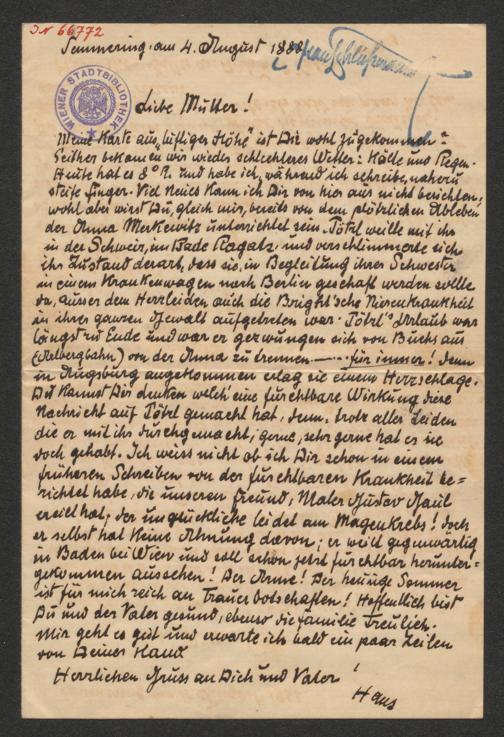 JN 66772
Semmering, am 4. August 1888
WIENER STADTBIBLIOTHEK
Liebe Mutter!
Meine Karte aus „luftiger Höhe" ist Dir wohl zugekommen?
Seither bekamen wir wieder schlechteres Wetter: Kälte und Regen.
Heute hat es 8° R. und habe ich, während ich schreibe, nahezu
steife Finger. Viel Neues kann ich Dir von hier aus nicht berichten,
wohl aber wirst Du, gleich mir, bereits von dem plötzlichen Ableben
der Anna Merkewitz unterrichtet sein. Pötzl weilte mit ihr
in der Schweiz, im Bade Ragatz, und verschlimmerte sich
ihr Zustand derart, dass sie, in Begleitung ihrer Schwester
in einem Krankenwagen nach Berlin geschaft werden sollte
da, ausser dem Herzleiden auch die Bright'sche Nierenkrankheit
in ihrer ganzen Gewalt aufgetreten war. Pötzl's Urlaub war
längst zu Ende und war er gezwungen sich von Buchs aus
(Arlbergbahn) von der Anna zu trennen — für immer! Denn
in Augsburg angekommen erlag sie einem Herzschlage.
Du kannst Dir denken welch' eine furchtbare Wirkung diese
Nachricht auf Pötzl gemacht hat, denn, trotz aller Leiden
die er mit ihr durchgemacht, gerne, sehr gerne hat er sie
doch gehabt. Ich weiss nicht ob ich Dir schon in einem
früheren Schreiben von der furchtbaren Krankheit be-
richtet habe, die unseren Freund, Maler Gustav Gaul
ereilt hat; der unglückliche leidet am Magenkrebs! Doch
er selbst hat keine Ahnung davon; er weilt gegenwärtig
in Baden bei Wien und soll schon jetzt furchtbar herunter-
gekommen aussehen! Der Arme! Der heurige Sommer
ist für mich reich an Trauerbotschaften! Hoffentlich bist
Du und der Vater gesund, ebenso die Familie Freulich.
Mir geht es gut und erwarte ich bald ein paar Zeilen
von Deiner Hand
Herzlichen Gruss an Dich und Vater!
Hans